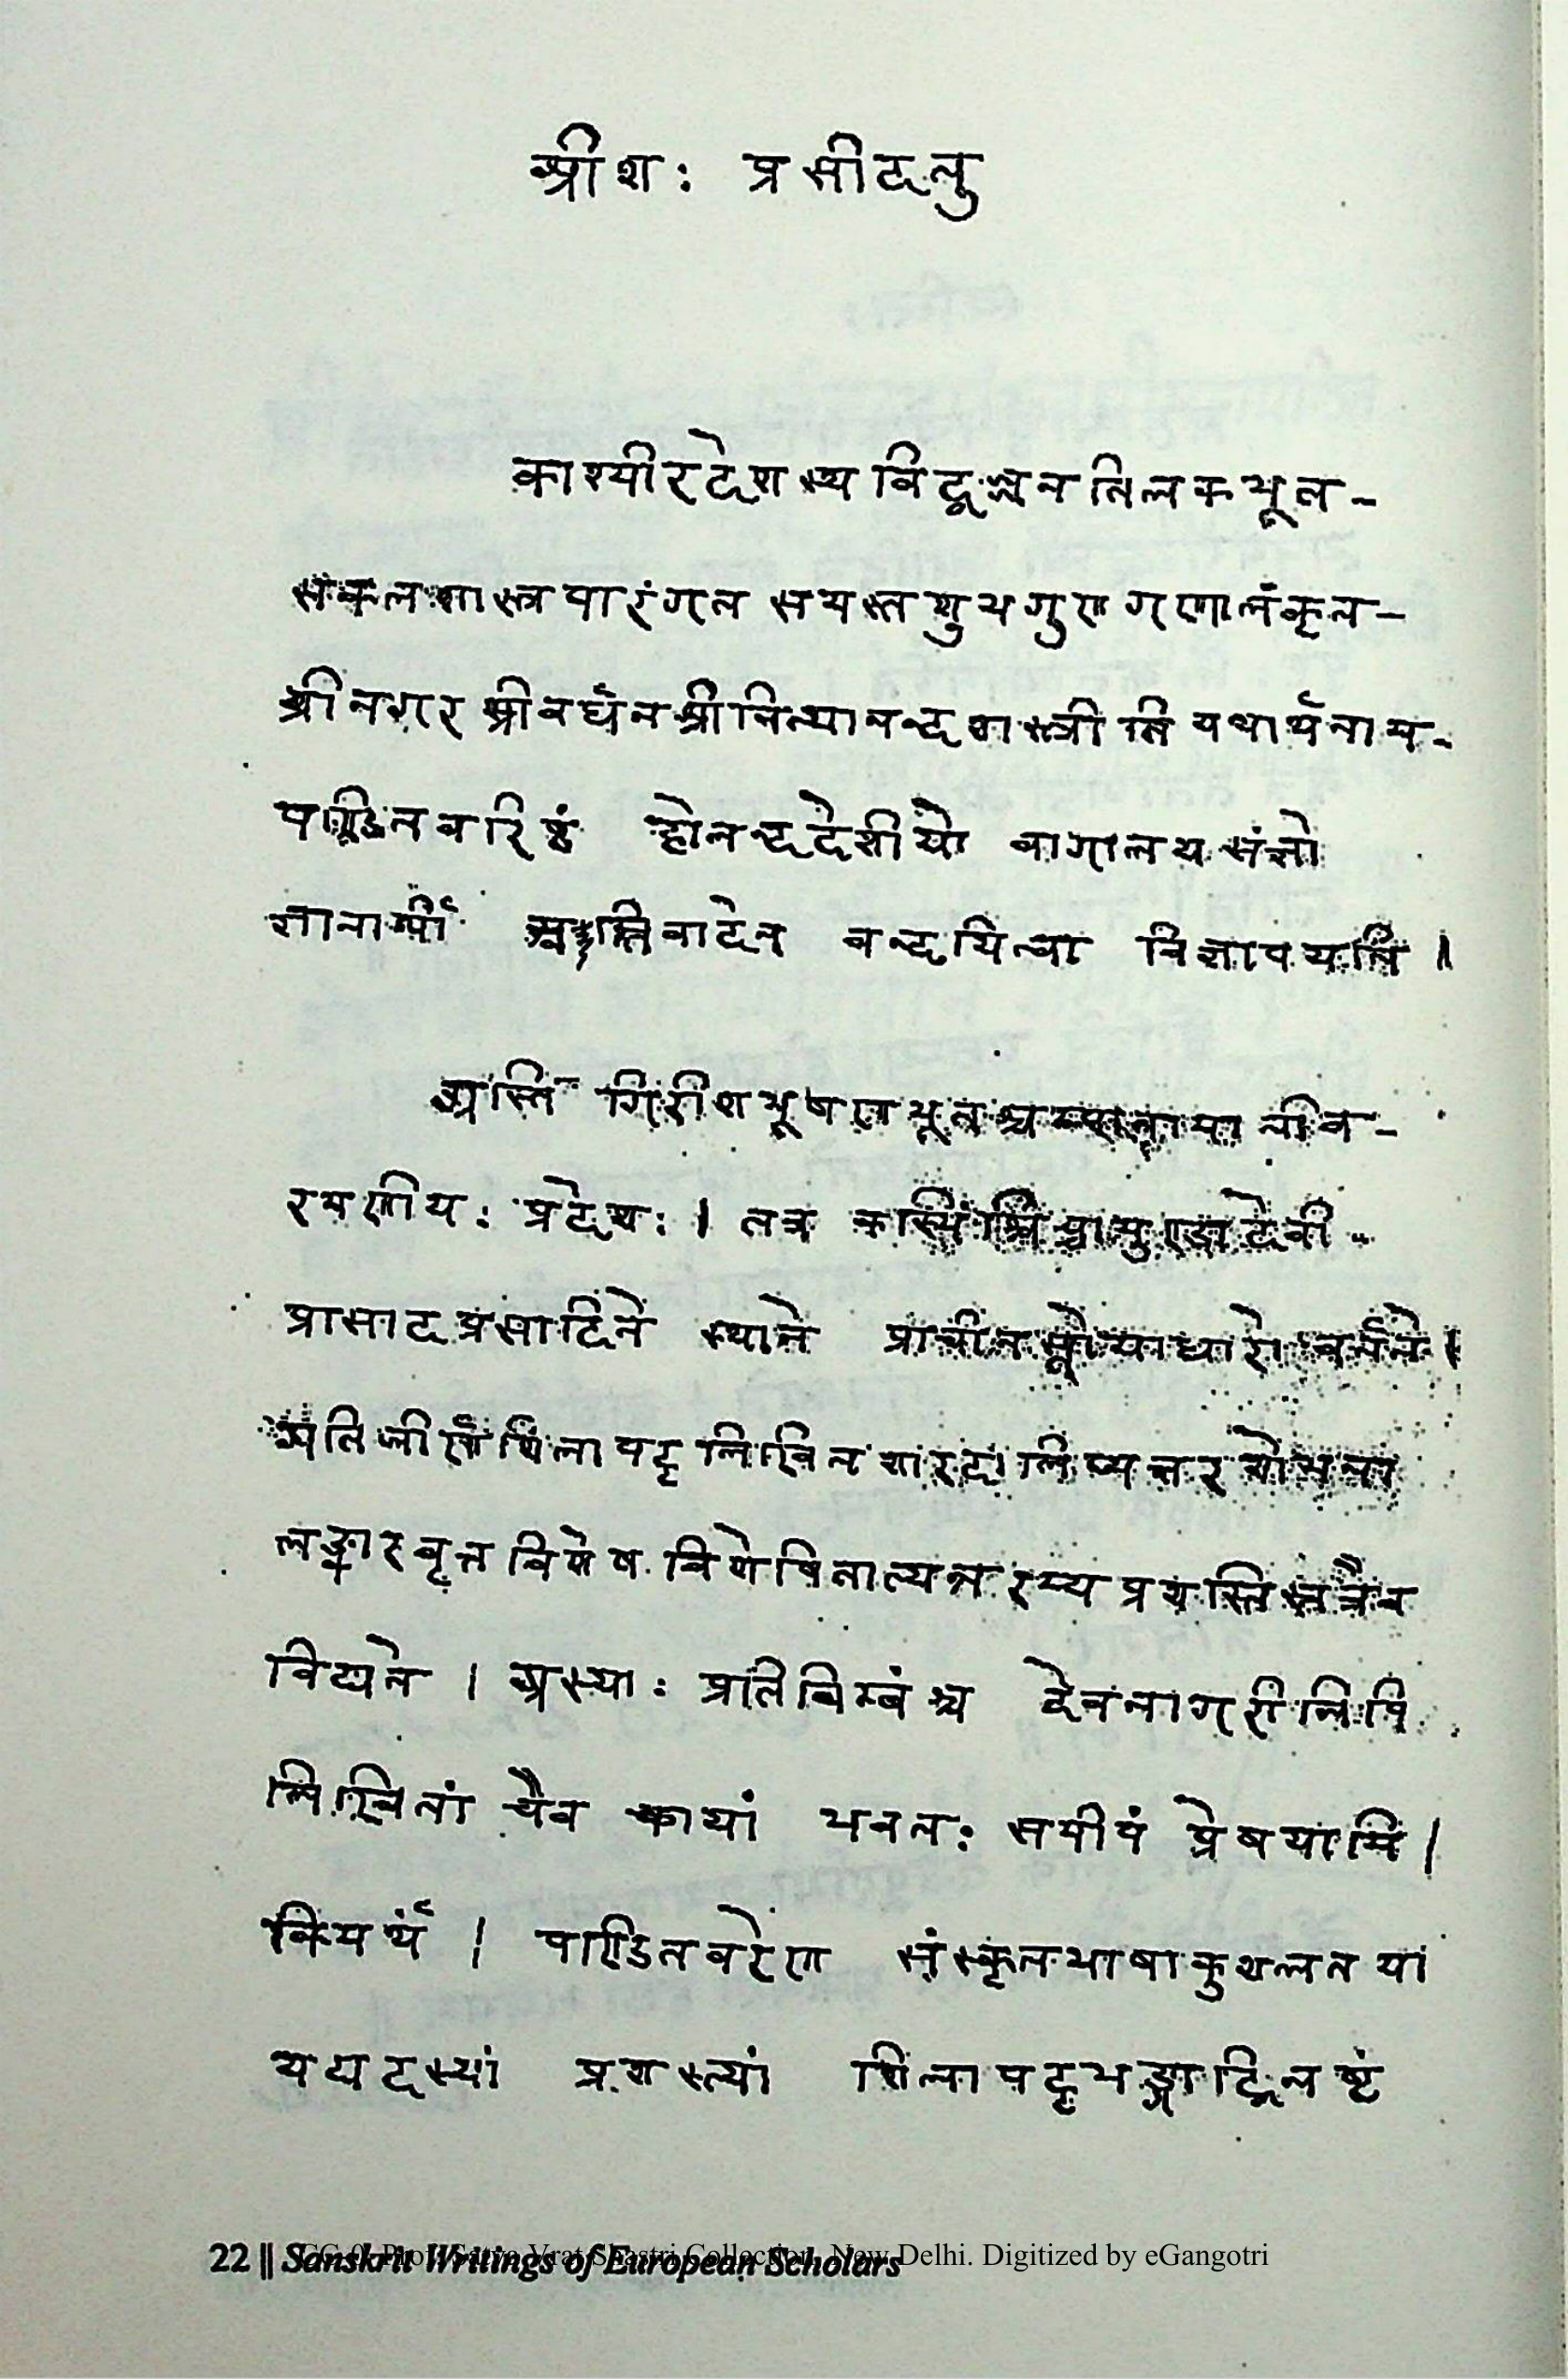 श्रीशः प्रसीदतु
काश्मीरदेशस्य विद्वज्जनतिलकभूत-
सकलशास्त्रपारंगत समस्तशुभगुणगणालंकृत-
श्रीनगरश्रीवर्धनश्रीनित्यानन्दशास्त्रीति यथार्थनाम-
पण्डितवरिष्ठं होलन्ददेशीयो वोगलयसंज्ञो
ज्ञानार्थी वादेन वन्दयित्वा विज्ञापयति ॥
अस्ति गिरीशभूषणभूतश्चम्पानामातीव-
रमणीयः प्रदेशः । तत्र कस्मिंश्चिच्चामुण्डादेवी-
प्रासादप्रसादिते स्थाने प्राचीन वर्तते ।
अतिजीर्णशिलापट्टलिखितशारदालिप्यक्षरशोभना
लङ्कारवृत्तविशेषविशेषितात्यन्तरम्यप्रशस्तिस्तत्रैव
विद्यते । अस्याः प्रतिबिम्बंश्च देवनागरीलिपि
लिखितां चैव कायां भवतः समीपं प्रेषयामि ।
किमर्थं । पण्डितवरेण संस्कृतभाषाकुशलतया
यद्यदस्यां प्रशस्त्यां शिलापट्टभङ्गाद्विनष्टं
22 || Sanskrit Writings of European Scholars
CC-0. Prof. Satya Vrat Shastri Collection, New Delhi. Digitized by eGangotri